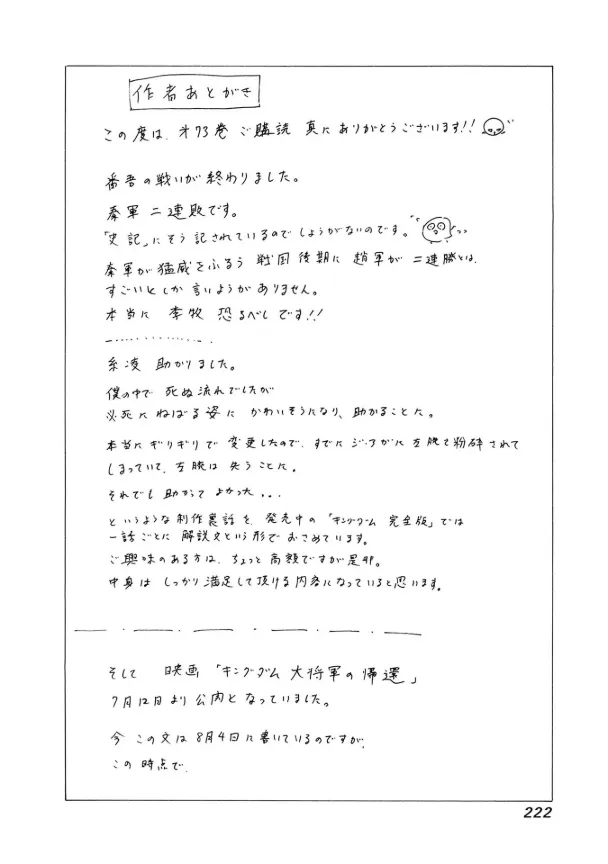 作者あとがき
この度は、才73巻 ご購読 真にありがとうございます!!
番吾の戦いが終わりました。
秦軍 二連敗です。
「史記」にそう記されているのでしょうがないのです。
秦軍が猛威をふるう 戦国後期に 趙軍が 二連勝とは、
すごいとしか言いようがありません。
本当に 李牧 恐るべしです!!
糸凌 助かりました。
僕の中で 死ぬ流れでしたが
必死にねばる姿に かわいそうになり、助かることに。
本当にギリギリで 変更したので、すでにジ・アガに左腕を粉砕されて
しまっていて、左腕は 失うことに。
それでも助かって よかった...
というような制作裏話を、発売中の「キングダム 完全版」では
一話ごとに 解説文という形で おさめています。
ご興味のある方は、ちょっと高額ですが是非。
中身は しっかり満足して頂ける内容になっていると思います。
そして 映画「キングダム 大将軍の帰還」
7月12日より公開となっていました。
今 この文は 8月4日に書いているのですが、
この時点で、
222